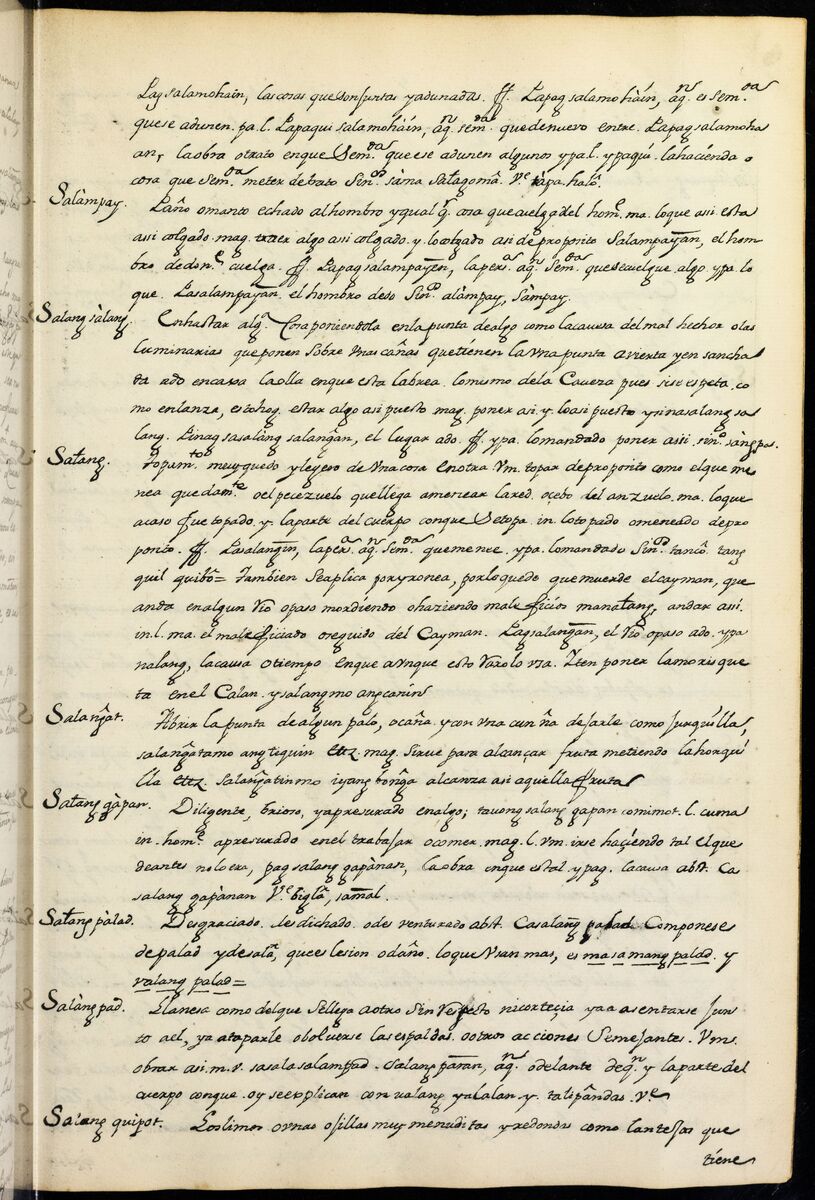 Pag salamohàin, las cosas que son juntas y adunadas. ff. Lapag salamohàin, aqⁿ. es sem.ᵈᵃ
que se adunen. pa. l. Lapaqui salamohàin, aqⁿ sem.ᵈᵃ que de nuevo entre. Lapag salamoha
an, la obra o trato en que Sem.ᵈᵃ que se adunen algunos y pa l. y paqui. la haciénda o
cosa que Sem.ᵈᵃ meter de trato Sin.ᵒᵈ sàma Satagomâ. Vᵉ tàpa, halô.
Salàmpay. Paño o manto echado al hombro y qual qᵃ. cosa que cuelga del homᵉ. ma. lo que asi esta
asi colgado. mag. traer algo asi colgado. y. lo colgado asi de proposito Salampayan, el hom
bro de donᵉ cuelga. ff. Lapag salampayen, la persᵃ aqⁿ. Sem.ᵈᵃ que se cuelgue algo ypa. lo
que. Lasalampayan, el hombro de so Sin.ᵒᵈ alàmpay, sàmpay.
Salang sàlang. Enhastar algᵃ. Cosa poniendola en la punta de algo como la causa del mal hechor o las
luminarias que ponen sobre vnas cañas que tienen la vna punta avierta y en sancha
da ado encaxa la olla en que esta la brea. lo mismo de la Cavera pues si se espeta, co
mo en lanza, estar algo asi puesto mag. poner asi. y. lo asi puesto y sinasalang sa
lang. Pinag sasalàng salangân, el lugar ado. ff. ypa. lo mandado poner asi. sin.ᵒ sàngpas.
Salàng. Topam.ᵗᵒ. muy quedo y ligero de vna cosa en otra. Vm. topar de proposito como el que me
nea quedam.ᵗᵉ o el pecezuelo que llega a mericar la red. o cebo del anzuelo. ma. lo que
acaso fue topado. y. la parte del cuerpo con que Se topa. in. lo topado o meneado de pro
posito. ff. Pasalangin, la persᵃ. aqⁿ Sem.ᵈᵃ que menee. ypa. lo mandado Sin.ᵒᵈ tancô. tang
quil quibô= Tambien Se aplica por yronea, por lo quedo que muerde el cayman, que
anda en algun Rio o paso mordiendo o haziendo maleficios manalang, andar asi.
in. l. ma. el maleficiado o seguido del Cayman. Pag salangan, el Rio. o paso ado. ypa
nalang, la causa o tiempo en que aunque esto Raro lo vsa. Yten poner la morisque
ta en el Calan. y salang mo ang canin
Salangat. Abrir la punta de algun palo, o caña. y con vna cuñña dejarle como jorquilla,
salangatamo ang tiquin ettz. mag. sirue para alcançar fruta metiendo la horqui
lla ettz. Salangatin mo iyang bonga alcanza asi aquella fruta
Salang gàpan. Diligente, brioso, y apresurado en algo; tavong salang gapan comimot. l. cuma
in. homᵉ apresurado en el trabajar o comer. mag. l. vm. irse haçiendo tal el que
de antes no lo era, pag salang gapànan, la obra en que es tal y pag. la causa abst. Ca
salang gapànan Vᵉ biglâ, samàl.
Salang pàlad. Desgraciado. desdichado. o desventurado abst. Casalang palad. Componese
de palad y de salâ, que es lesion o daño. lo que vsan mas, es masamang palad. y
valang palad=
Salàng pad. Llanesa como del que Se llega a otro Sin respeto ni corteçia ya a asentarse jun
to a el, ya a taparle o bolverse las espaldas. o otras acciones Semejantes. Vm.
obrar asi. m. v. sasala salampad. Salang paran, aqⁿ. o delante de qⁿ. y la parte del
cuerpo conque. oy se explican con valang yalalan y. talipàndas. vᵉ
Salang quipot. Los limos o vnas osillas muy menuditas y redondas como lantejas que
tiene